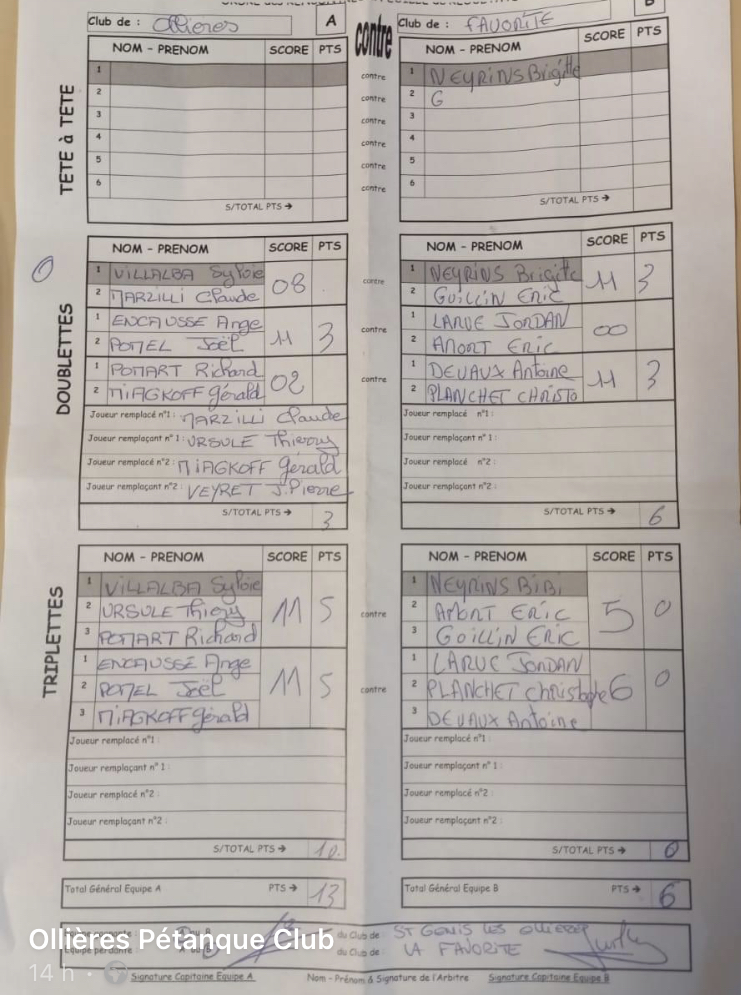 Club de : Ollieres A
contre
Club de : FAVORITE B
TETE à TETE
NOM - PRENOM SCORE PTS
1
2
3
4
5
6
S/TOTAL PTS →
contre
contre
contre
contre
contre
contre
NOM - PRENOM SCORE PTS
1 NEYRINS Brigitte
2 G
3
4
5
6
S/TOTAL PTS →
0
DOUBLETTES
NOM - PRENOM SCORE PTS
1 VILLALBA Sylvie 08
2 MARZILLI Claude
1 ENCAUSSE Ange 11 3
2 POMEL Joël
1 POMART Richard 02
2 MIAGKOFF Gérald
Joueur remplacé n°1 : MARZILLI Claude
Joueur remplaçant n° 1 : URSULE Thierry
Joueur remplacé n°2 : MIAGKOFF Gérald
Joueur remplaçant n°2 : VEYRET J.Pierre
S/TOTAL PTS → 3
contre
contre
contre
NOM - PRENOM SCORE PTS
1 NEYRINS Brigitte 11 3
2 GUILLIN ERIC
1 LARUE JORDAN 00
2 AMORT ERIC
1 DEVAUX Antoine 11 3
2 PLANCHET CHRISTO
Joueur remplacé n°1 :
Joueur remplaçant n° 1 :
Joueur remplacé n°2 :
Joueur remplaçant n°2 :
S/TOTAL PTS → 6
TRIPLETTES
NOM - PRENOM SCORE PTS
1 VILLALBA Sylvie
2 URSULE Thierry 11 5
3 POMART Richard
1 ENCAUSSE Ange
2 POMEL Joël 11 5
3 MIAGKOFF Gérald
Joueur remplacé n°1 :
Joueur remplaçant n° 1 :
Joueur remplacé n°2 :
Joueur remplaçant n°2 :
S/TOTAL PTS → 10.
contre
contre
NOM - PRENOM SCORE PTS
1 NEYRINS BiBi
2 AMORT ERIC 5 0
3 GUILLIN ERIC
1 LARUE JORDAN
2 PLANCHET Christophe 6 0
3 DEVAUX Antoine
Joueur remplacé n°1 :
Joueur remplaçant n° 1 :
Joueur remplacé n°2 :
Joueur remplaçant n°2 :
S/TOTAL PTS → 0
Total Général Equipe A PTS → 13
Total Général Equipe B PTS → 6
du Club de : ST GENIS LES OLLIERES
Equipe perdante : A ou B du Club de : LA FAVORITE
Ollières Pétanque Club
14 h
Signature Capitaine Equipe A Nom - Prénom & Signature de l'Arbitre Signature Capitaine Equipe B